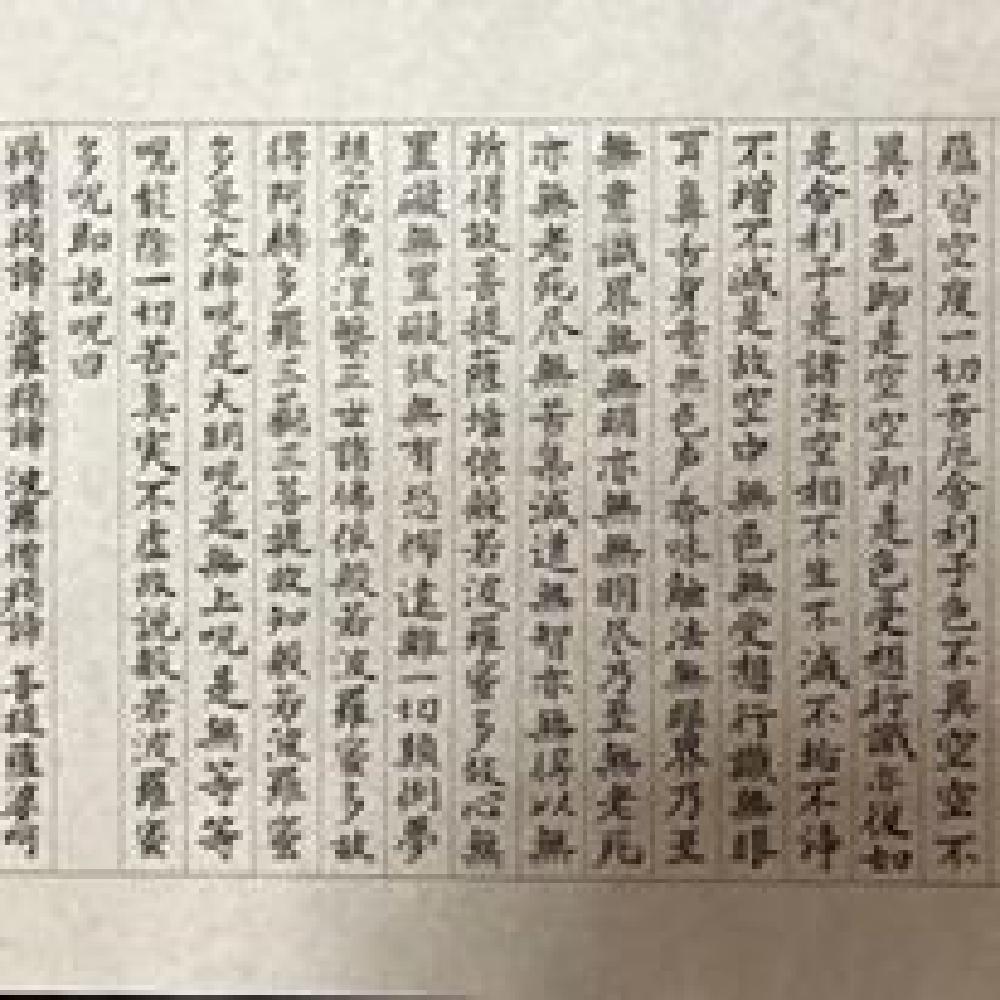 蘊皆空度一切苦厄舎利子色不異空空不
異色色即是空空即是色受想行識亦復如
是舎利子是諸法空相不生不滅不垢不浄
不増不減是故空中無色無受想行識無眼
耳鼻舌身意無色声香味触法無眼界乃至
無意識界無無明亦無無明尽乃至無老死
亦無老死尽無苦集滅道無智亦無得以無
所得故菩提薩埵依般若波羅蜜多故心無
罣礙無罣礙故無有恐怖遠離一切顛倒夢
想究竟涅槃三世諸佛依般若波羅蜜多故
得阿耨多羅三藐三菩提故知般若波羅蜜
多是大神呪是大明呪是無上呪是無等等
呪能除一切苦真実不虚故説般若波羅蜜
多呪即説呪曰
羯諦羯諦 波羅羯諦 波羅僧羯諦 菩提薩婆訶